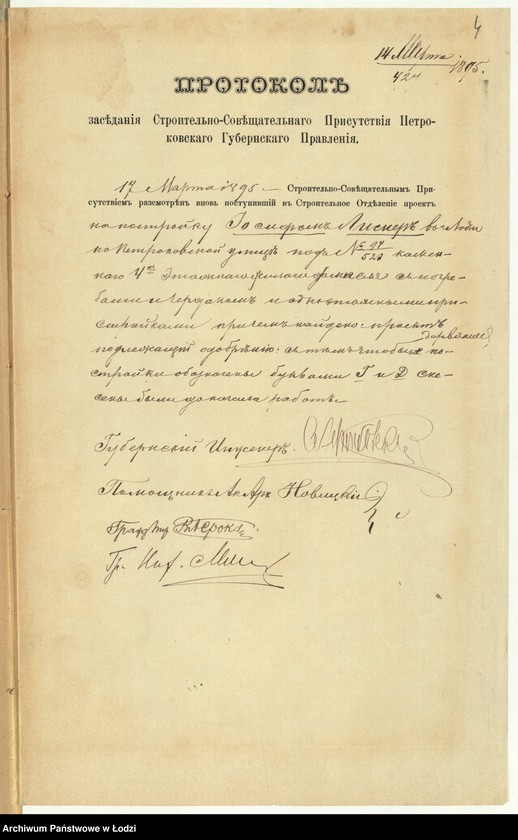 4
14 Марта 1895.
424
ПРОТОКОЛЪ
засѣданія Строительно-Совѣщательнаго Присутствія Петро-
ковскаго Губернскаго Правленія.
17 Марта 1895 — Строительно-Совѣщательнымъ При-
сутствіемъ разсмотрѣнъ вновь поступившій въ Строительное Отдѣленіе проектъ
на постройку Іосифомъ Лиснеръ въ г. Лодзи
по Петроковской улицѣ подъ № 97/523 камен-
наго 4хъ этажнаго жилаго дома съ погре-
бами и чердакомъ и одноэтажными при-
стройками причемъ найдено: проектъ
подлежащій одобренію: съ тѣмъ чтобы по-
стройки обозначены буквами Г и Д сне-
сены были до начала работъ.
Губернскій Инженеръ
Помощникъ Арх Новицкій
Гр. Инж.
Archiwum Państwowe w Łodzi